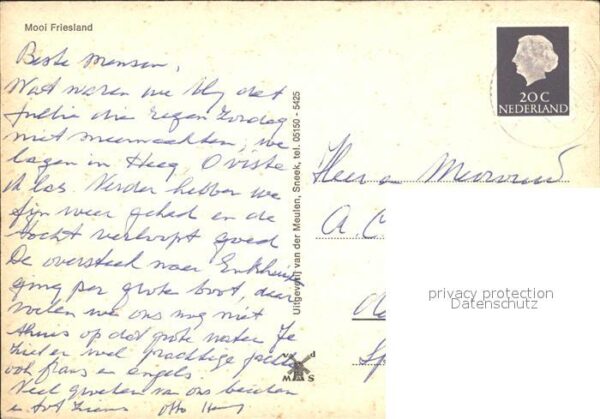 Mooi Friesland
Beste mensen,
Wat waren we blij dat
jullie die regen zondag
niet meemaakten, we
lagen in Heeg. O wist
ik las. Verder hebben we
fijn weer gehad en de
tocht verloopt goed
De oversteek naar Enkhuizen
ging per grote boot, daar
voelen we ons nog niet
thuis op dat grote water. Je
ziet er wel prachtige
ook frans en engels.
Veel groeten van ons beiden
en tot ziens Otto
Uitgeverij van der Meulen, Sneek, tel. 05150 - 5425
20 C
NEDERLAND
Heer en Mevrouw
A. C
privacy protection
Datenschutz
v d
M S